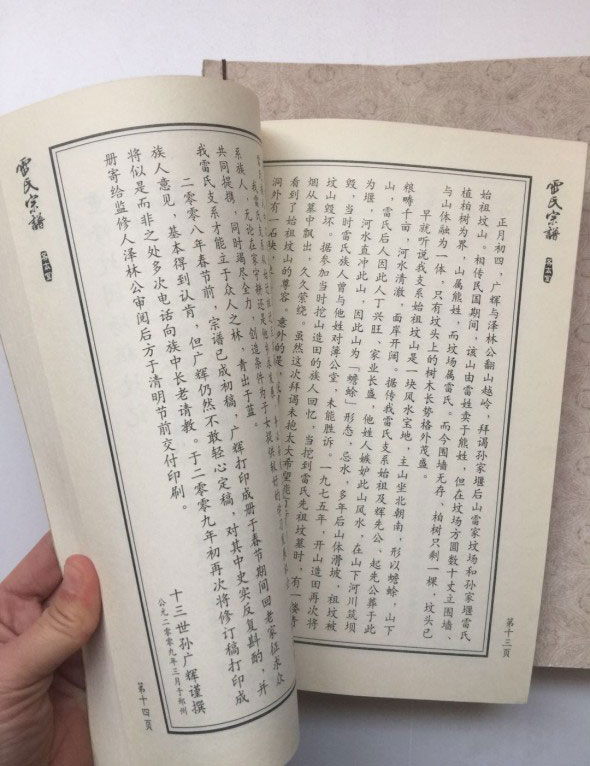 雷氏宗谱
正月初四,广辉与泽林公翻山越岭,拜谒孙家堰后山雷家坟场和孙家堰雷氏
始祖坟山。相传民国期间,该山由雷姓卖于熊姓,但在坟场方圆数十丈立围墙、
植柏树为界,山属熊姓,而坟场属雷氏。而今围墙无存、柏树只剩一棵,坟头已
与山体融为一体,只有坟头上的树木长势格外茂盛。
早就听说我支系始祖坟山是一块风水宝地,主山坐北朝南,形以蟾蜍,山下
粮畴千亩,河水清澈,面岸开阔。据传我雷氏支系始祖及辉先公、起先公葬于此
山,雷氏后人因此人丁兴旺、家业长盛,他姓人嫉妒此山风水,在山下河川筑坝
为堰,河水直冲此山,因此山为「蟾蜍」形态,忌水,多年后山体滑坡,祖坟被
毁,当时雷氏族人曾与他姓对薄公堂,未能胜诉。一九七五年,开山造田再次将
坟山毁坏。据参加当时挖山造田的族人回忆,当挖到雷氏先祖坟墓时,有一缕青
烟从墓中飘出,久久萦绕。虽然这次拜谒未抱太大希望能
看到了始祖坟山的尊容。意外的是
洞外有一石块,
第十三页
系族人,无论在家守耕还是
共同提携,同时竭尽全力,创造条件为子女提供
我雷氏支系才能立于众人之林,青出于蓝。
二零零八年春节前,宗谱已成初稿,广辉打印成册于春节期间回老家征求众
族人意见,基本得到认肯,但广辉仍然不敢轻心定稿,对其中史实反复斟酌,并
将似是而非之处多次电话向族中长老请教。于二零零九年初再次将修订稿打印成
册寄给监修人泽林公审阅后方于清明节前交付印刷。
十三世孙广辉谨撰
公元二零零九年三月于郑州
第十四页
雷氏宗谱